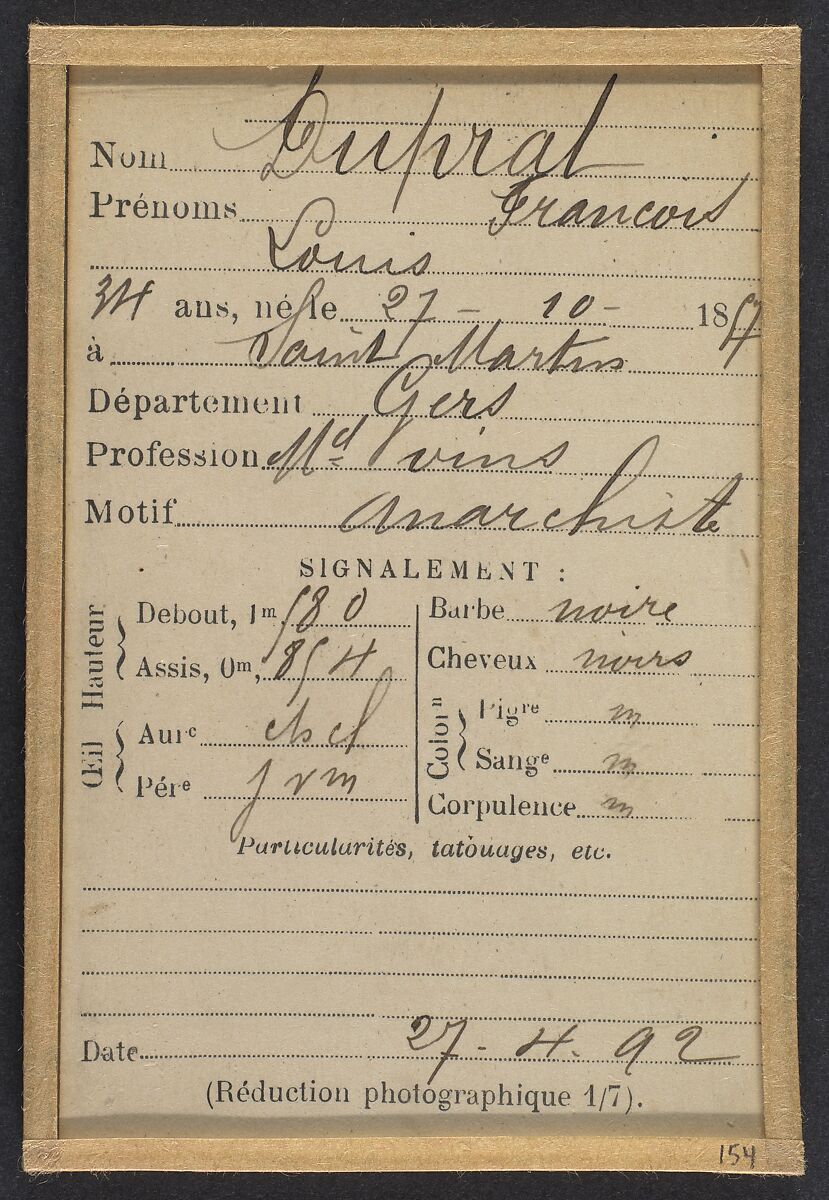 Nom Duprat
Prénoms François
Louis
34 ans, né le 27 - 10 - 1857
à Saint Martin
Département Gers
Profession Md vins
Motif Anarchiste
SIGNALEMENT :
Hauteur
Debout, 1m, 580
Assis, 0m, 854
Œil
Aurc ch cl
Pére j v m
Barbe noire
Cheveux noirs
Colorn
Pigre m
Sange m
Corpulence m
Particularités, tatouages, etc.
Date 27 - 4. 92
(Réduction photographique 1/7).
154